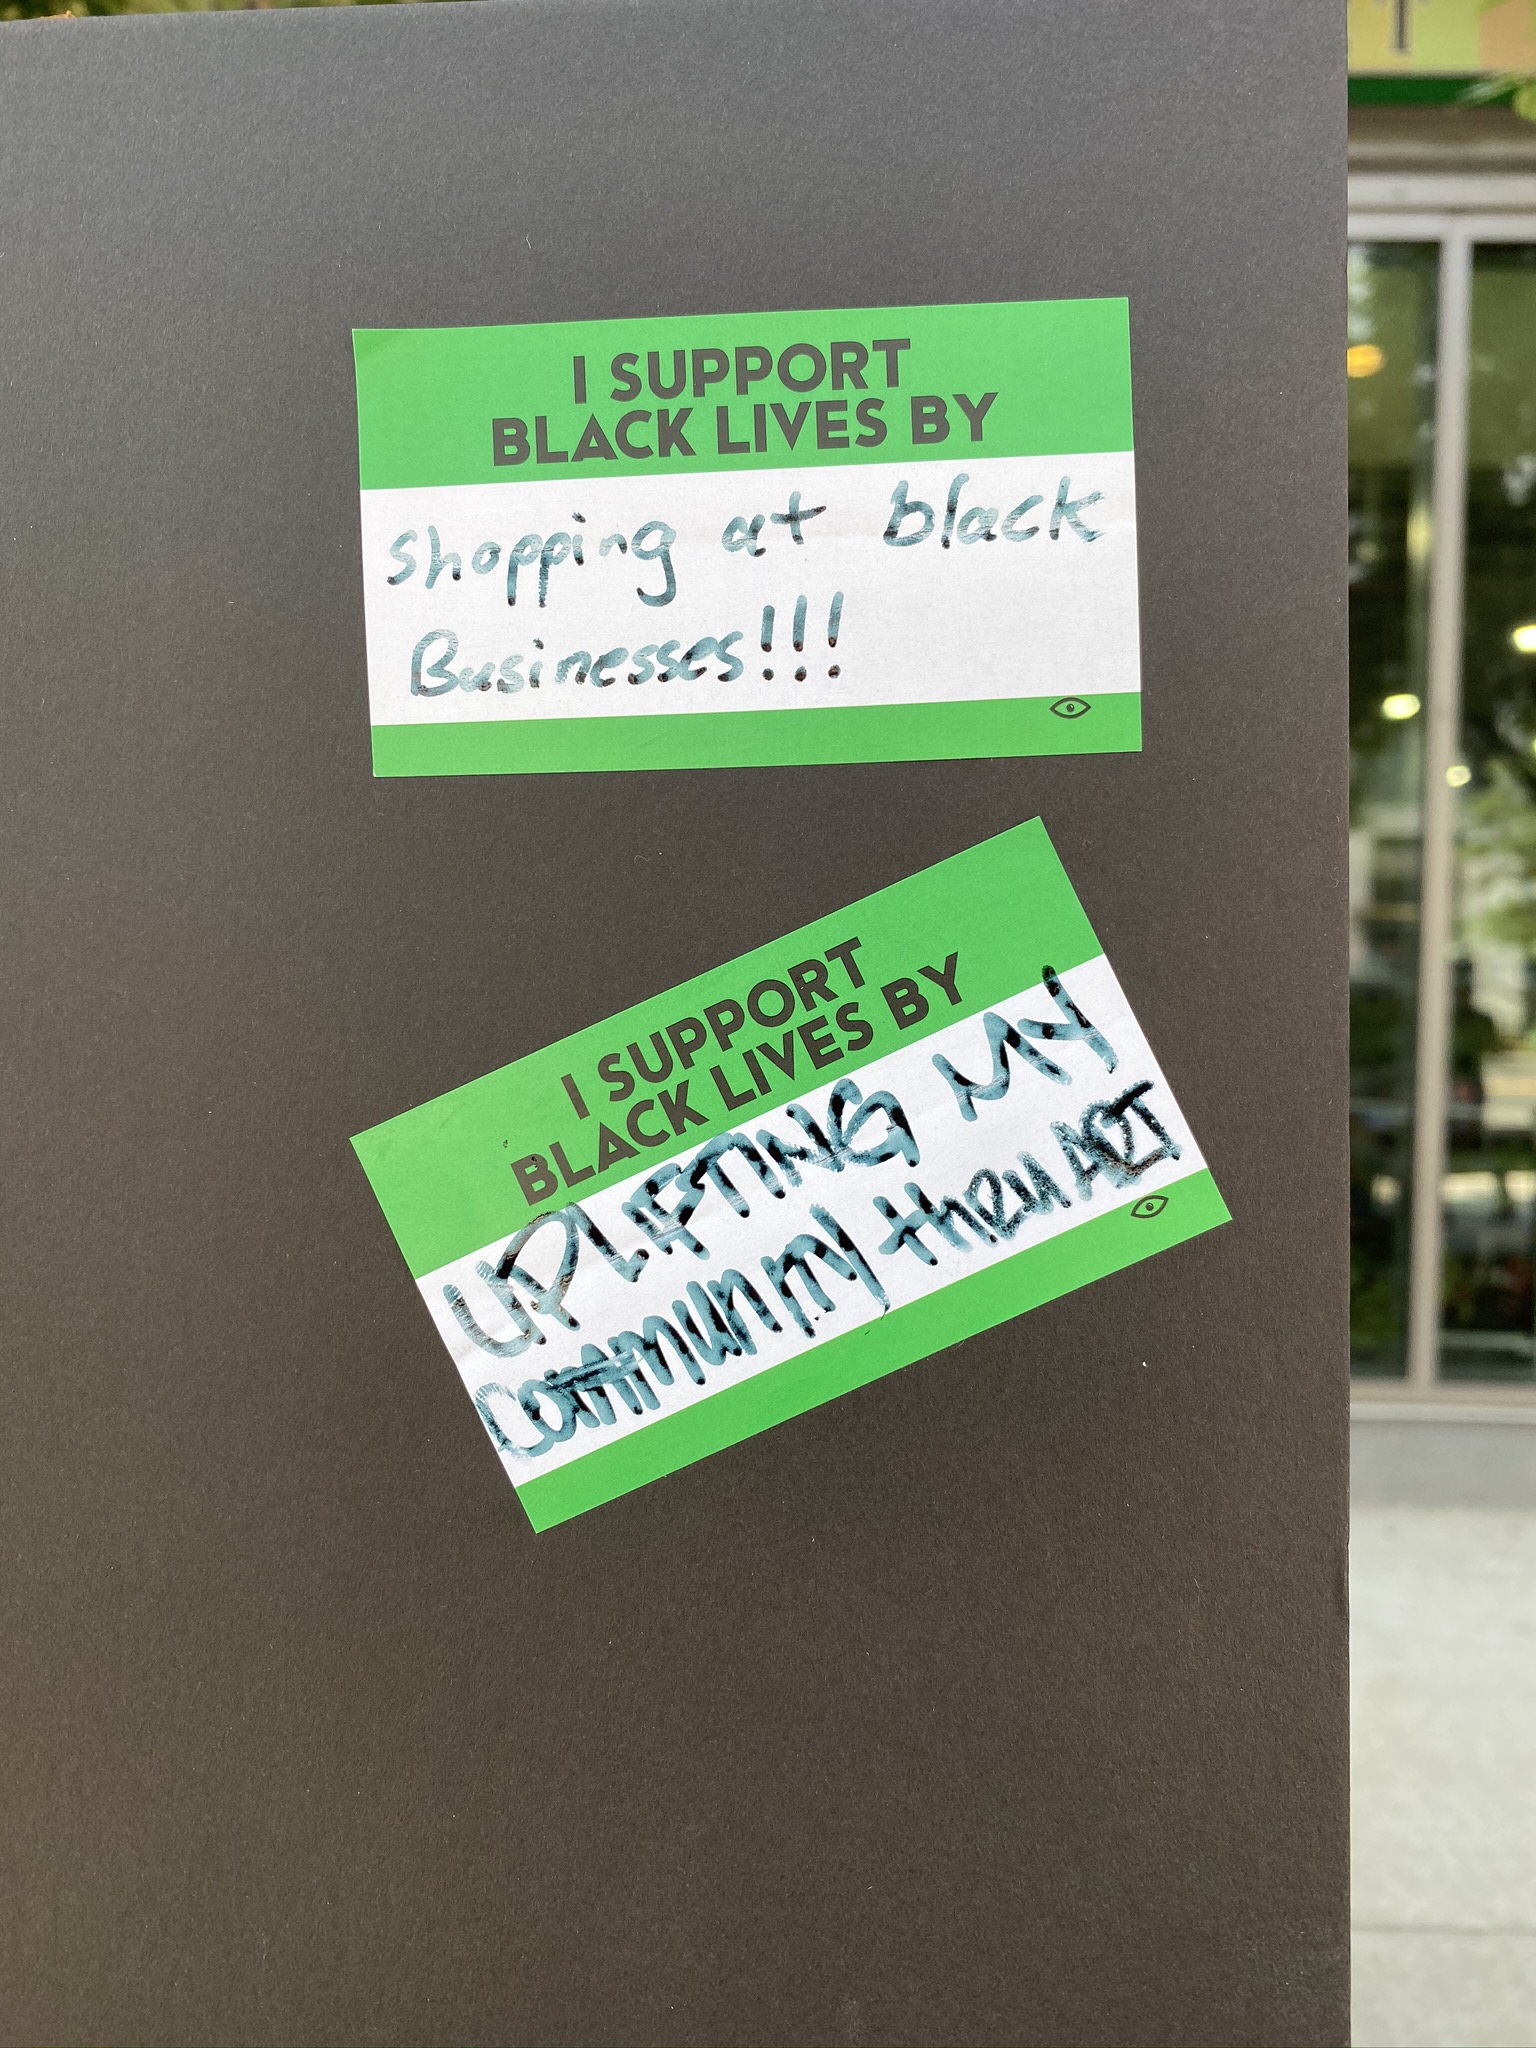 I SUPPORT
BLACK LIVES BY
shopping at black
Businesses!!!
I SUPPORT
BLACK LIVES BY
UPLIFTING MY
COMMUNITY thRu ART
T